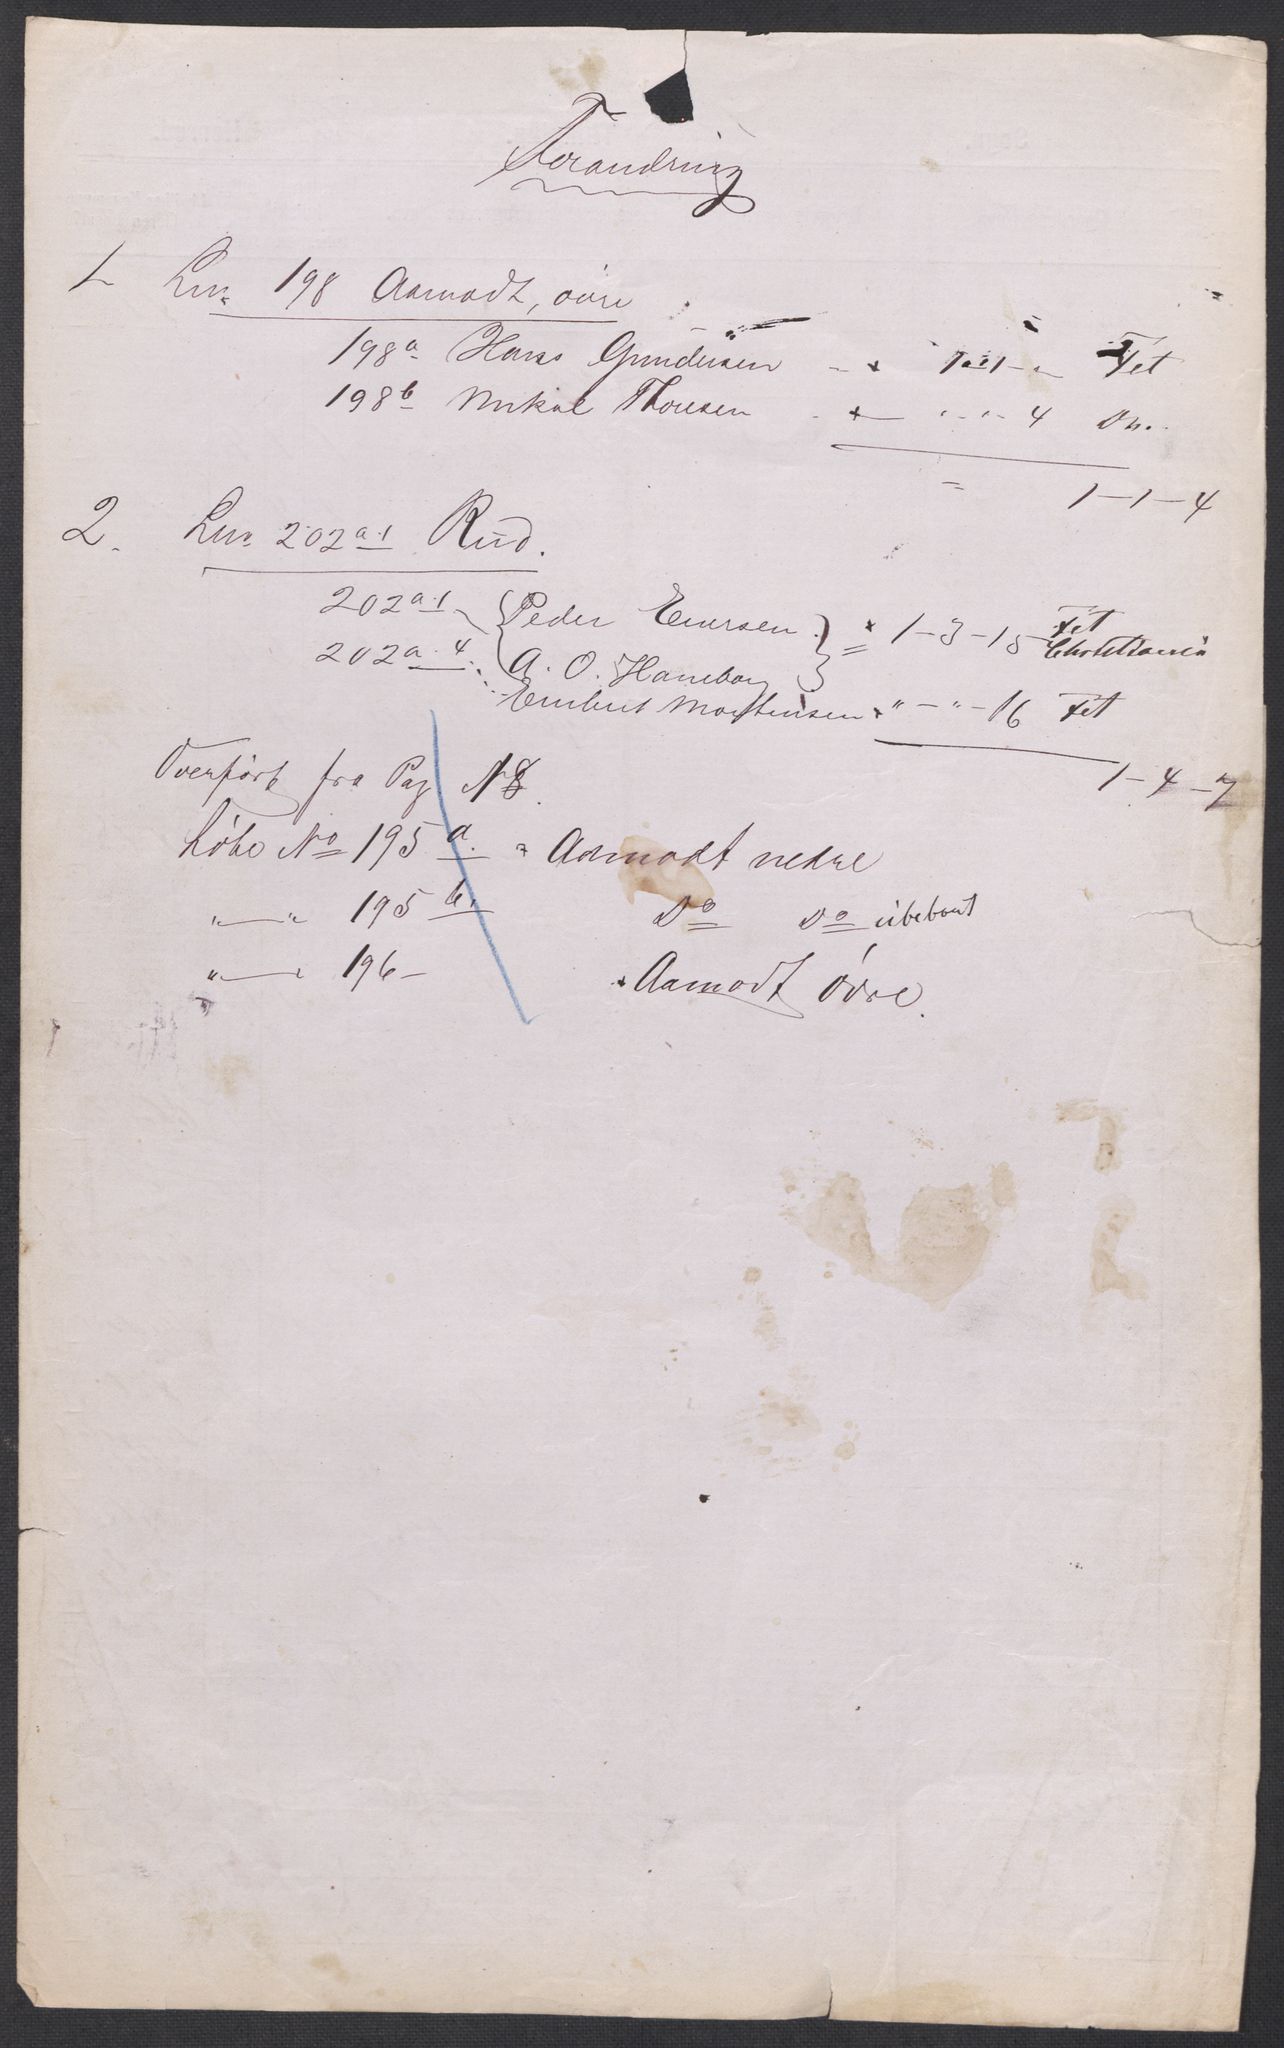 Forandring
1. Lnr. 198 Aamodt, övre
198a Hans Gundersen 1-1-" Fet
198b Mikal Thorsen " - " - 4 Do.
= 1-1-4
2. Lnr. 202a1 Rud.
202a.1 Peder Enersen = 1-3-15 Fet
202a.4 A. O. Haneborg Christiania
Embret Mortensen " - " - 16 Fet
1-4-7
Overfört fra Pag N 8.
Löbe No 195 a. Aamodt nedre
" — " 195 b. Do Do ubebout
" — " 196 - Aamodt Övre.